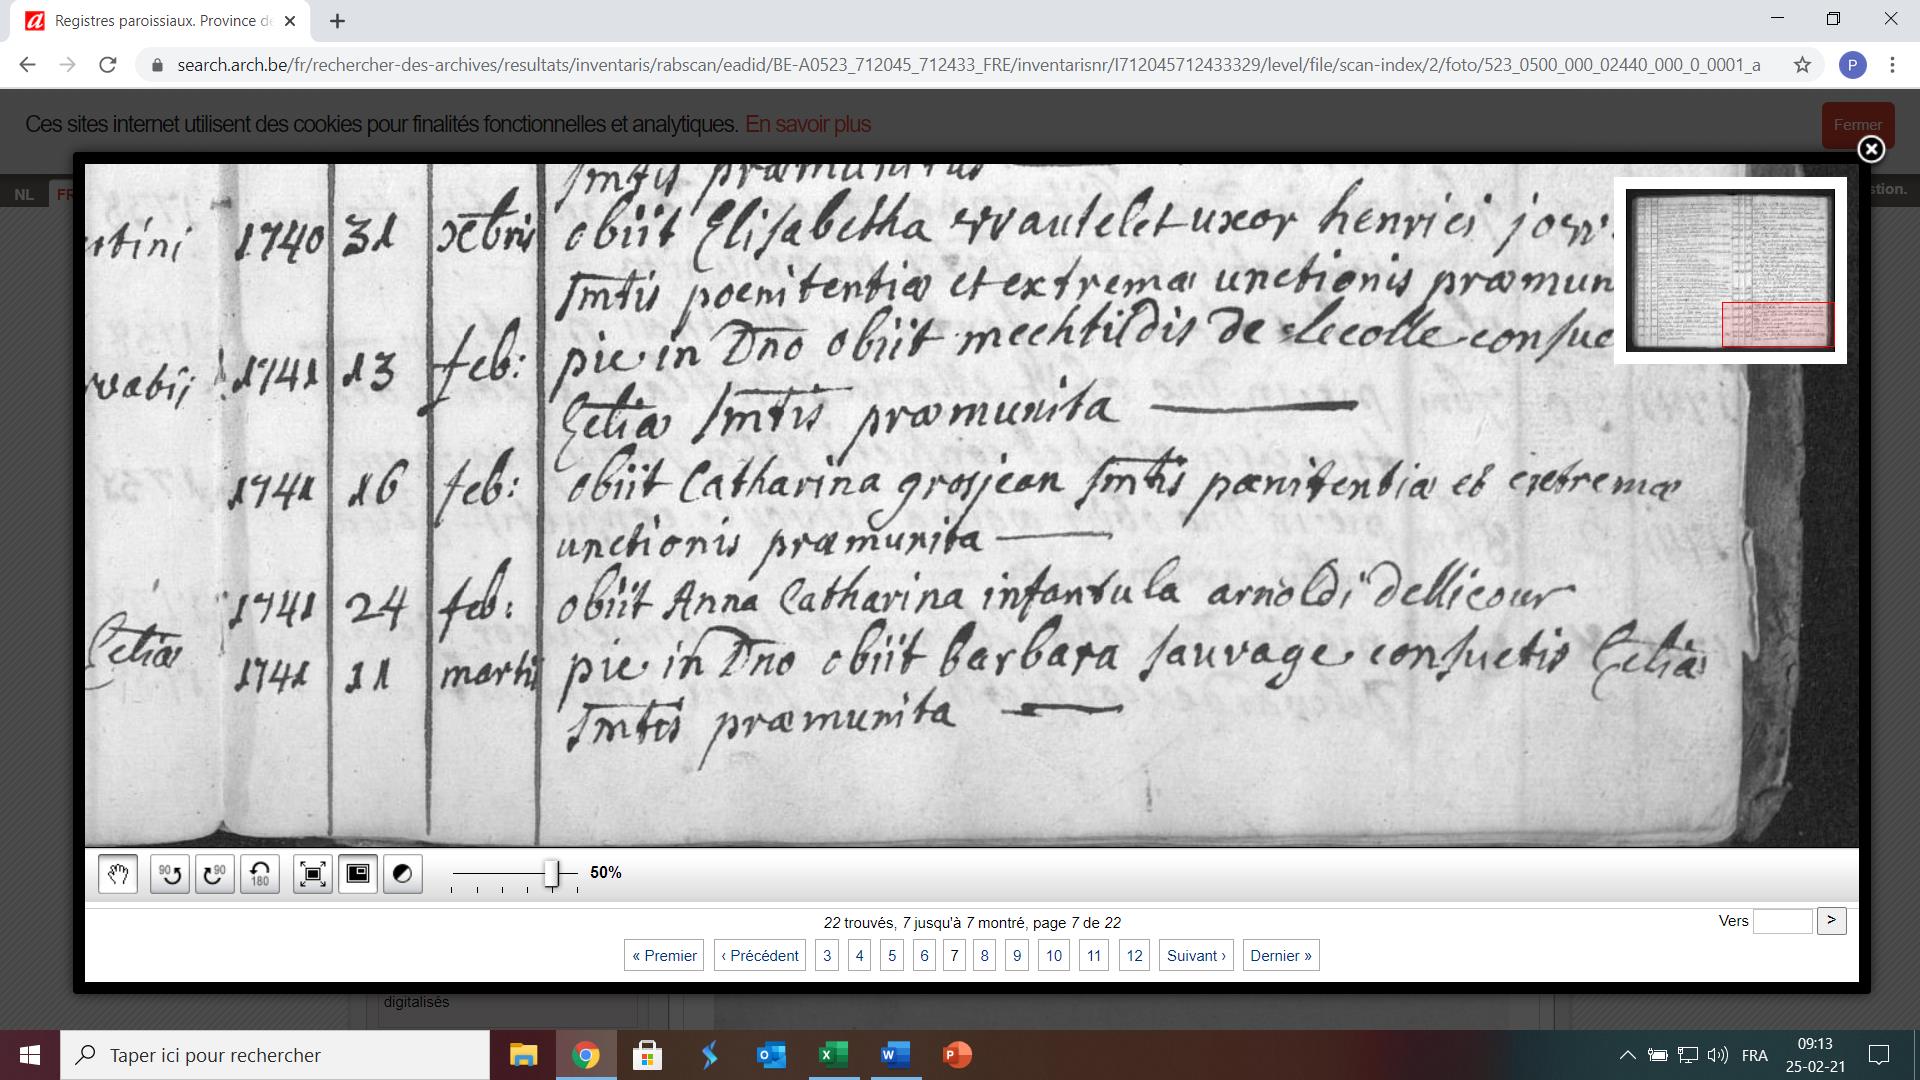 Registres paroissiaux. Province de
search.arch.be/fr/rechercher-des-archives/resultats/inventaris/rabscan/eadid/BE-A0523_712045_712433_FRE/inventarisnr/I712045712433329/level/file/scan-index/2/foto/523_0500_000_02440_000_0_0001_a
P
Ces sites internet utilisent des cookies pour finalités fonctionnelles et analytiques. En savoir plus
Fermer
NL FR
stion.
Smtis præmunitus
1740 31 xbris obiit Elisabetha wautelet uxor henrici
Smtis poenitentiæ et extremæ unctionis præmun
1741 13 feb: pie in Dno obiit mechtildis de Lecolle consue
Ecliæ Smtis præmunita
1741 16 feb: obiit Catharina grosjean Smtis pœnitentiæ et extremæ
unctionis præmunita
1741 24 feb: obiit Anna Catharina infantula arnoldi dellicour
Ecliæ 1741 11 martii pie in Dno obiit barbara sauvage consuetis Ecliæ
Smtis præmunita
90 90 180 50%
22 trouvés, 7 jusqu'à 7 montré, page 7 de 22
Vers >
« Premier ‹ Précédent 3 4 5 6 7 8 9 10 11 12 Suivant › Dernier »
digitalisés
Taper ici pour rechercher
FRA
09:13
25-02-21